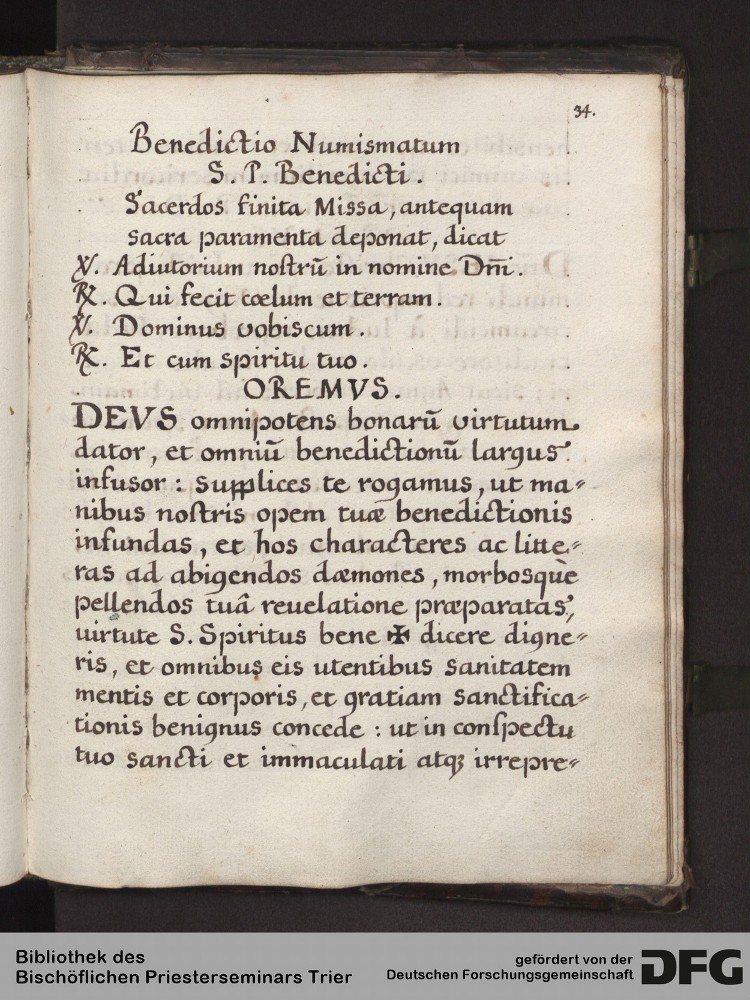 34.
Benedictio Numismatum
S. P. Benedicti.
Sacerdos finita Missa, antequam
sacra paramenta deponat, dicat
℣. Adiutorium noſtrū in nomine Dn̄i.
℟. Qui fecit cœlum et terram.
℣. Dominus vobiscum.
℟. Et cum spiritu tuo.
OREMVS.
DEVS omnipotens bonarū virtutum
dator, et omniū benedictionū largus
infusor: supplices te rogamus, ut ma⸗
nibus noſtris opem tuæ benedictionis
infundas, et hos characteres ac litte⸗
ras ad abigendos dæmones, morbosquè
pellendos tuâ reuelatione præparatas,
uirtute S. Spiritus bene ✠ dicere digne⸗
ris, et omnibus eis utentibus sanitatem
mentis et corporis, et gratiam sanctifica⸗
tionis benignus concede: ut in conſpectu
tuo sancti et immaculati atqꝫ irrepre⸗
Bibliothek des
Bischöflichen Priesterseminars Trier
gefördert von der
Deutschen Forschungsgemeinschaft
DFG